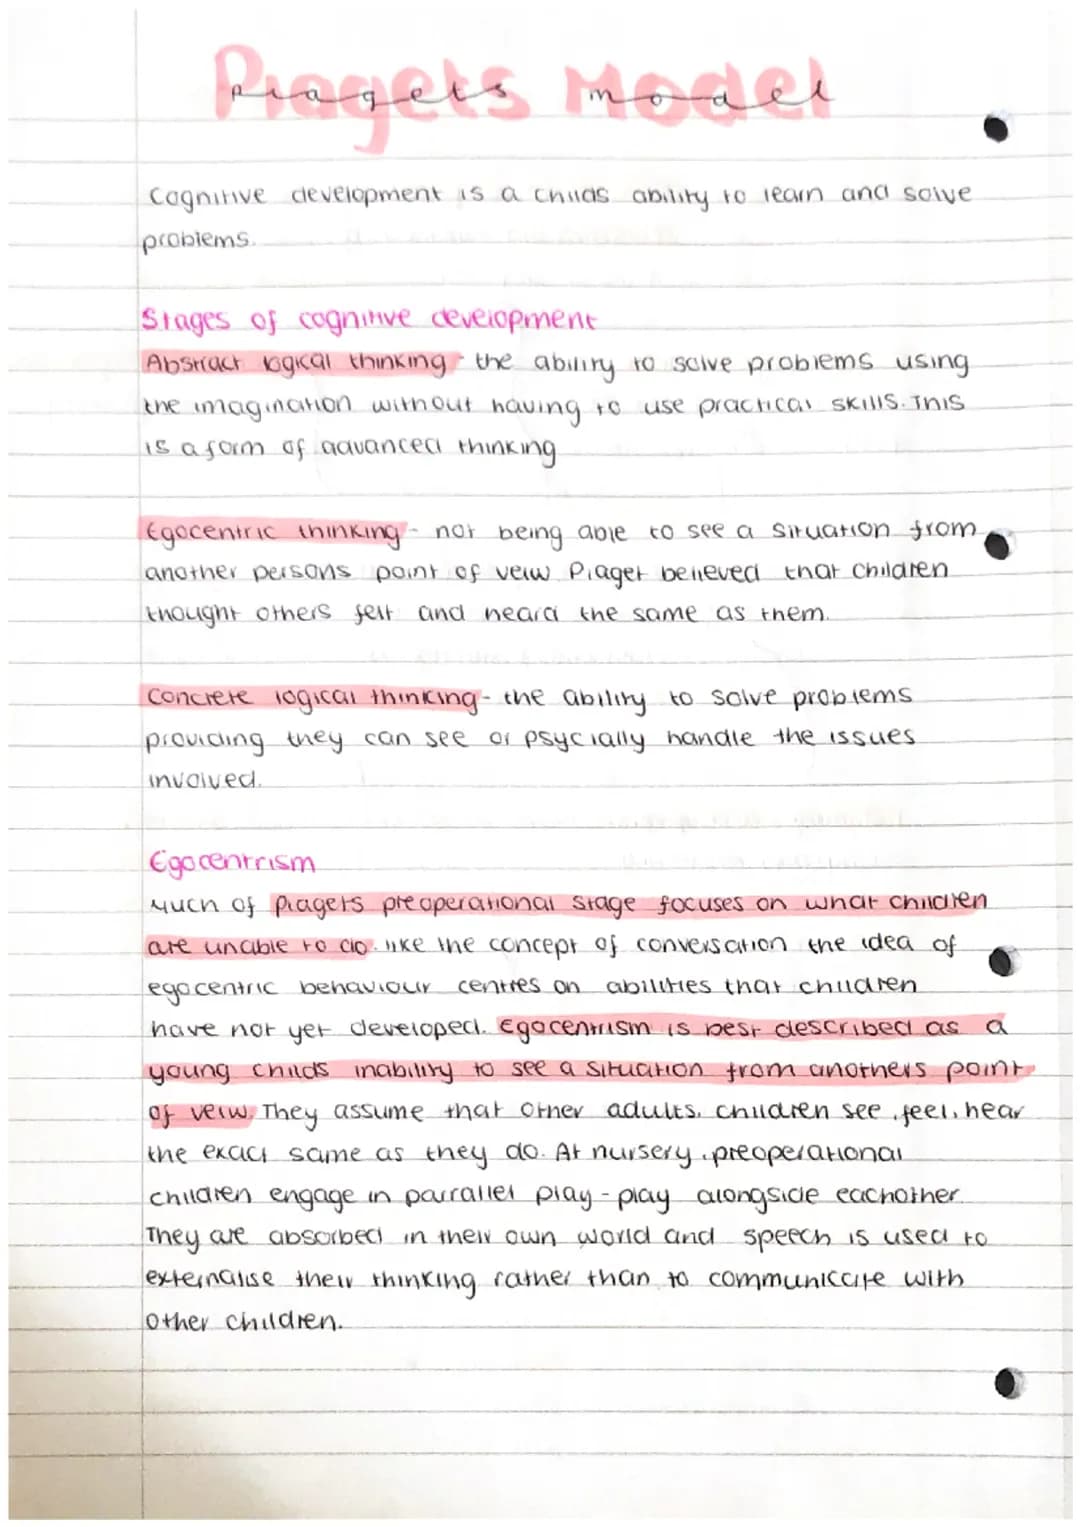 Piagets Model
Piagets model
Cognitive development is a childs ability to learn and solve
problems.
Stages of cognitive development
Abstract logical thinking - the ability to solve problems using
the imagination without having to use practical skills. This
is a form of advanced thinking
Egocentric thinking - not being able to see a situation from
another persons point of veiw Piaget believed that children
thought others felt and heard the same as them.
Concrete logical thinking - the ability to solve problems
providing they can see or psycially handle the issues
involved.
Egocentrism
Much of Piagets preoperational stage focuses on what children
are unable to do. like the concept of conversation the idea of
egocentric behaviour centres on abilities that children
have not yet developed. Egocentrism is best described as a
young childs inability to see a situation from anothers point
of veiw. They assume that other adults, children see, feel, hear
the exact same as they do. At nursery, preoperational
children engage in parrallel play - play alongside eachother.
They are absorbed in their own world and speech is used to
externalise their thinking rather than to communiccate with
other children.